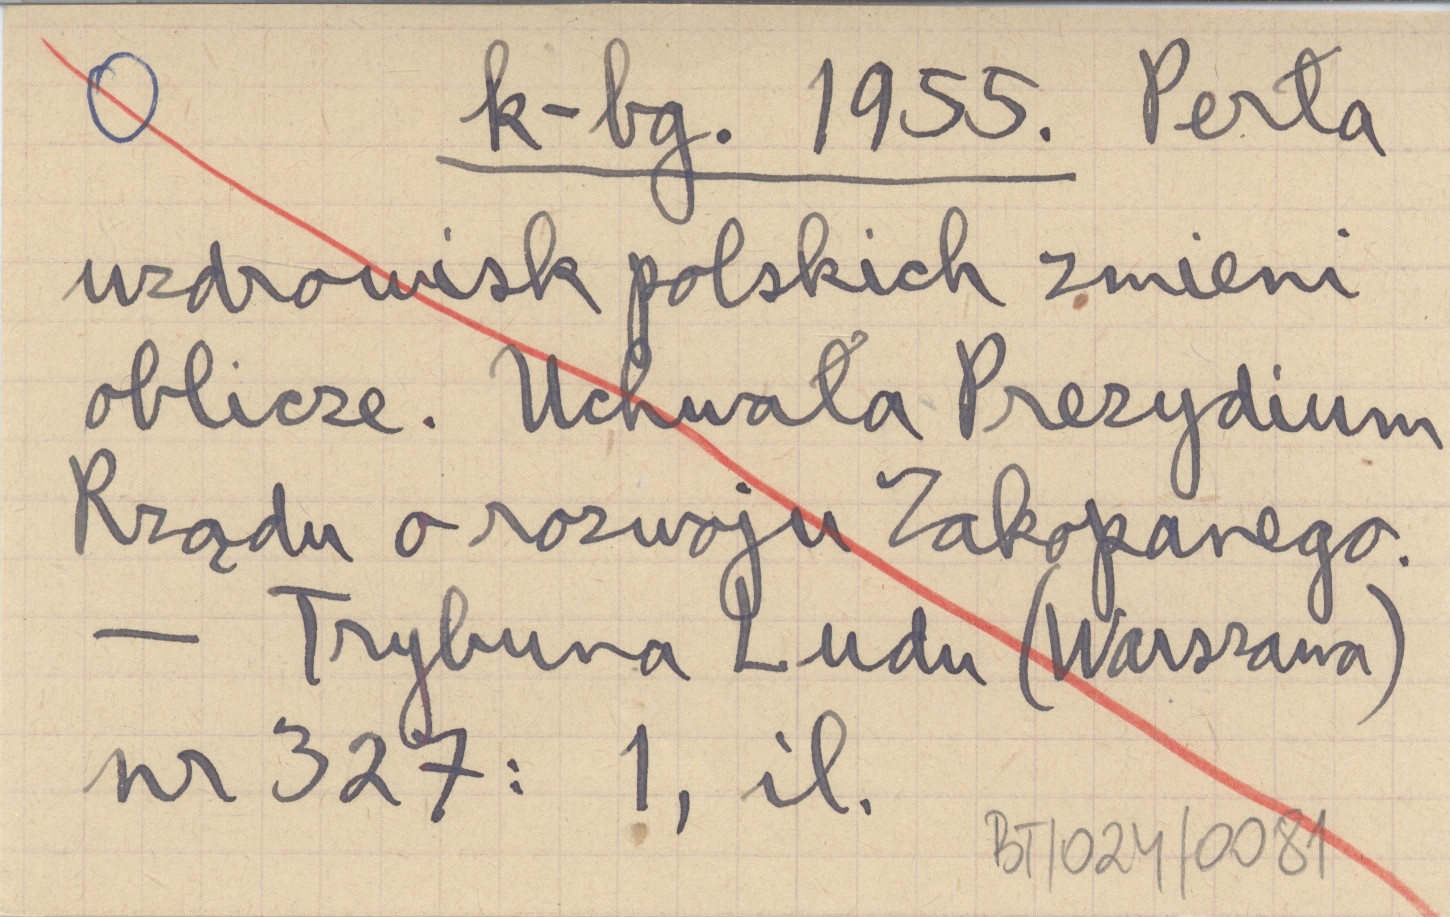 k-bg. 1955. Perła
uzdrowisk polskich zmieni
oblicze. Uchwała Prezydium
Rządu o rozwoju Zakopanego.
— Trybuna Ludu (Warszawa)
nr 327: 1, il.
BT/024/0081